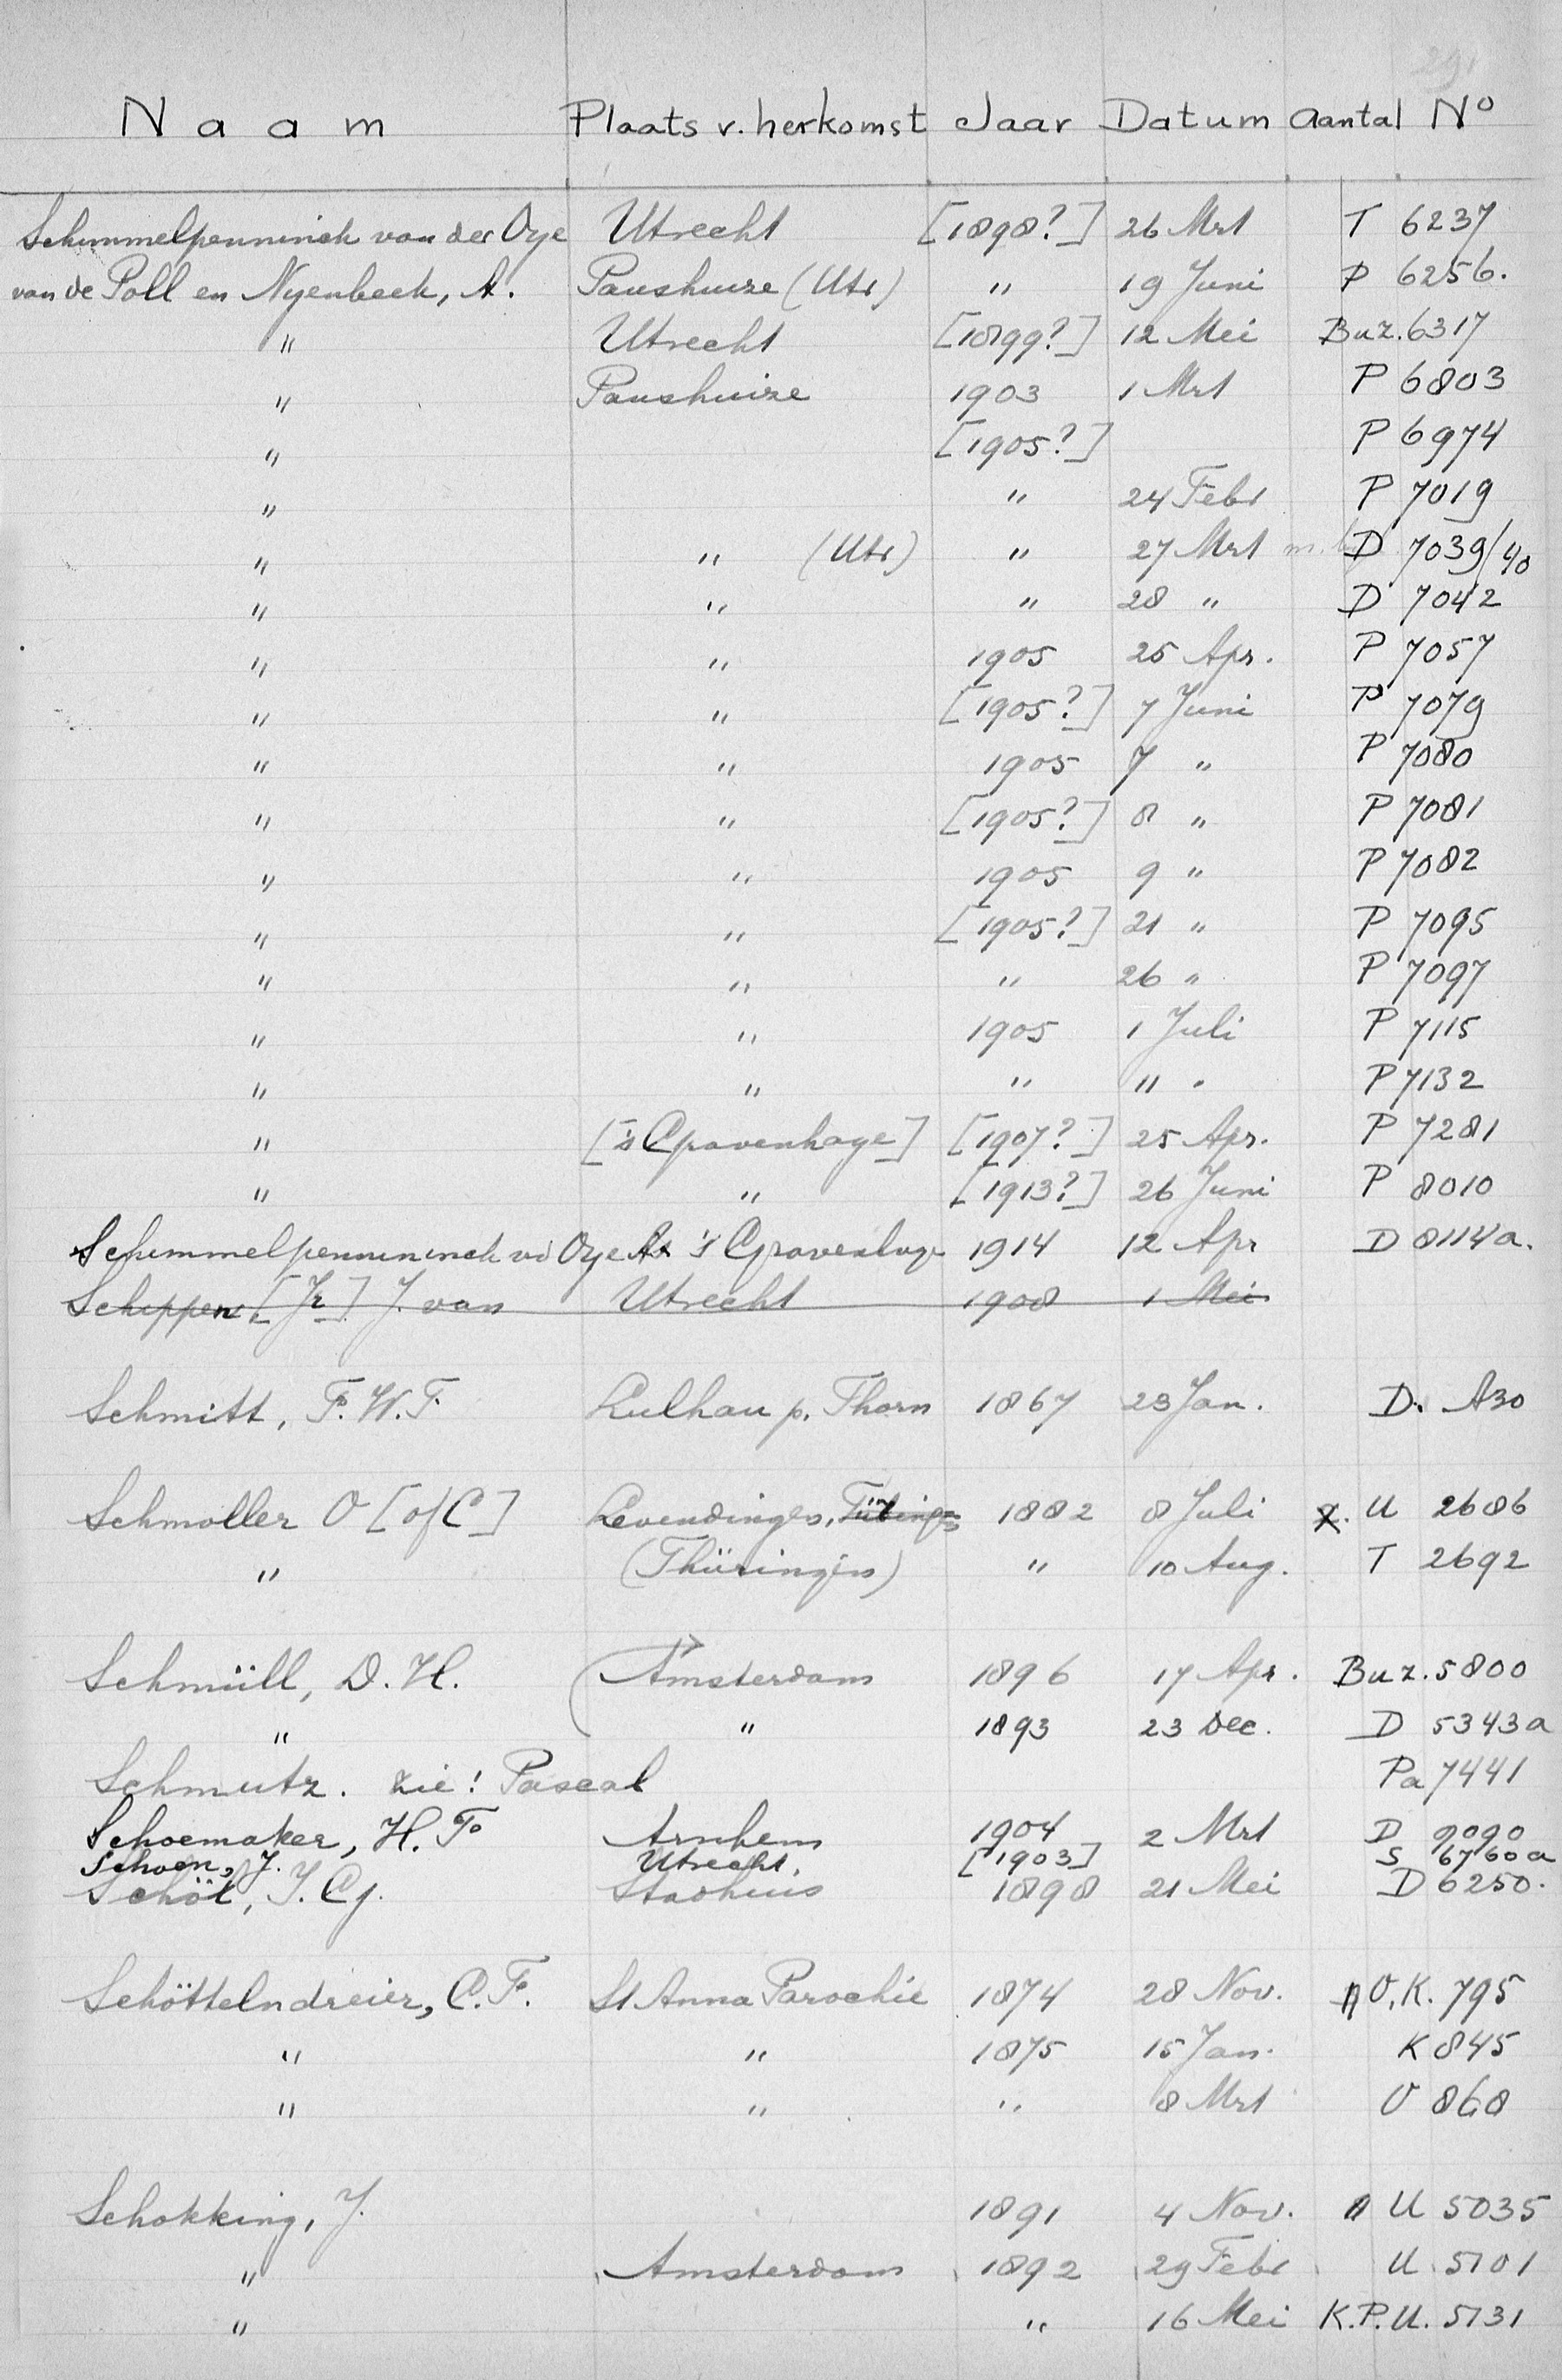 291
Naam Plaats v. herkomst Jaar Datum Aantal No
Schimmelpenninck van der Oye Utrecht [1898?] 26 Mrt T 6237
van de Poll en Nyenbeek, A. Paushuize (Utr) " 19 Juni P 6256.
" Utrecht [1899?] 12 Mei Buz. 6317
" Paushuize 1903 1 Mrt P 6803
" [1905?] P 6974
" " 24 Febr P 7019
" " (Utr) " 27 Mrt D 7039/40
" " " 28 " D 7042
" " 1905 25 Apr. P 7057
" " [1905?] 7 Juni P 7079
" " 1905 7 " P 7080
" " [1905?] 8 " P 7081
" " 1905 9 " P 7082
" " [1905?] 21 " P 7095
" " " 26 " P 7097
" " 1905 1 Juli P 7115
" " " 11 " P 7132
" ['s Gravenhage] [1907?] 25 Apr. P 7281
" " [1913?] 26 Juni P 8010
Schimmelpenninck vd Oye 's Gravenhage 1914 12 Apr D 8114a.
Schippen [Jr] J. van Utrecht 1908 1 Mei
Schmitt, F. W. F. Lulkau p. Thorn 1867 23 Jan. D. A30
Schmoller O [of C] Levendingen, Tübingen 1882 8 Juli x. U 2686
" (Thüringen) " 10 Aug. T 2692
Schmüll, D. H. Amsterdam 1896 17 Apr. Buz. 5800
" " 1893 23 Dec. D 5343a
Schmutz. zie! Pascal Pa 7441
Schoemaker, H. F. Arnhem 1904 2 Mrt D 9090
Schoen, J. Utrecht. [1903] S 6760a
Schöl, J. Cj. Stadhuis 1898 21 Mei D 6250.
Schöttelndreier, C. F. St Anna Parochie 1874 28 Nov. O, K. 795
" " 1875 15 Jan. K 845
" " " 8 Mrt O 868
Schokking, J. 1891 4 Nov. U 5035
" Amsterdam 1892 29 Febr U 5101
" " 16 Mei K.P.U. 5131